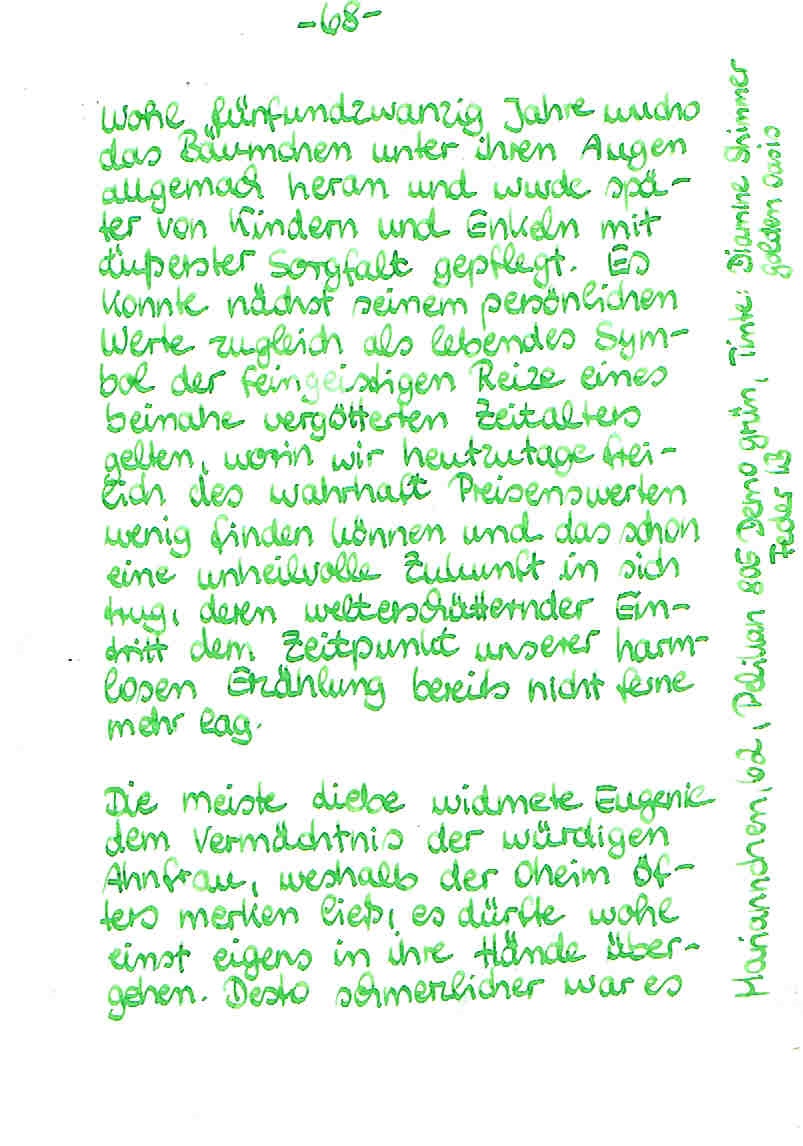 -68-
Wohl fünfundzwanzig Jahre wuchs
das Bäumchen unter ihren Augen
allgemach heran und wurde spä-
ter von Kindern und Enkeln mit
äußerster Sorgfalt gepflegt. Es
konnte nächst seinem persönlichen
Werte zugleich als lebendes Sym-
bol der feingeistigen Reize eines
beinahe vergötterten Zeitalters
gelten, worin wir heutzutage frei-
lich des wahrhaft Preisenswerten
wenig finden können und das schon
eine unheilvolle Zukunft in sich
trug, deren welterschütternder Ein-
tritt dem Zeitpunkt unserer harm-
losen Erzählung bereits nicht ferne
mehr lag.
Die meiste Liebe widmete Eugenie
dem Vermächtnis der würdigen
Ahnfrau, weshalb der Oheim öf-
ters merken ließ, es dürfte wohl
einst eigens in ihre Hände über-
gehen. Desto schmerzlicher war es
Mariannchen, 62, Pelikan 805 Demo grün, Tinte: Diamine Shimmer
golden Oasis
Feder B